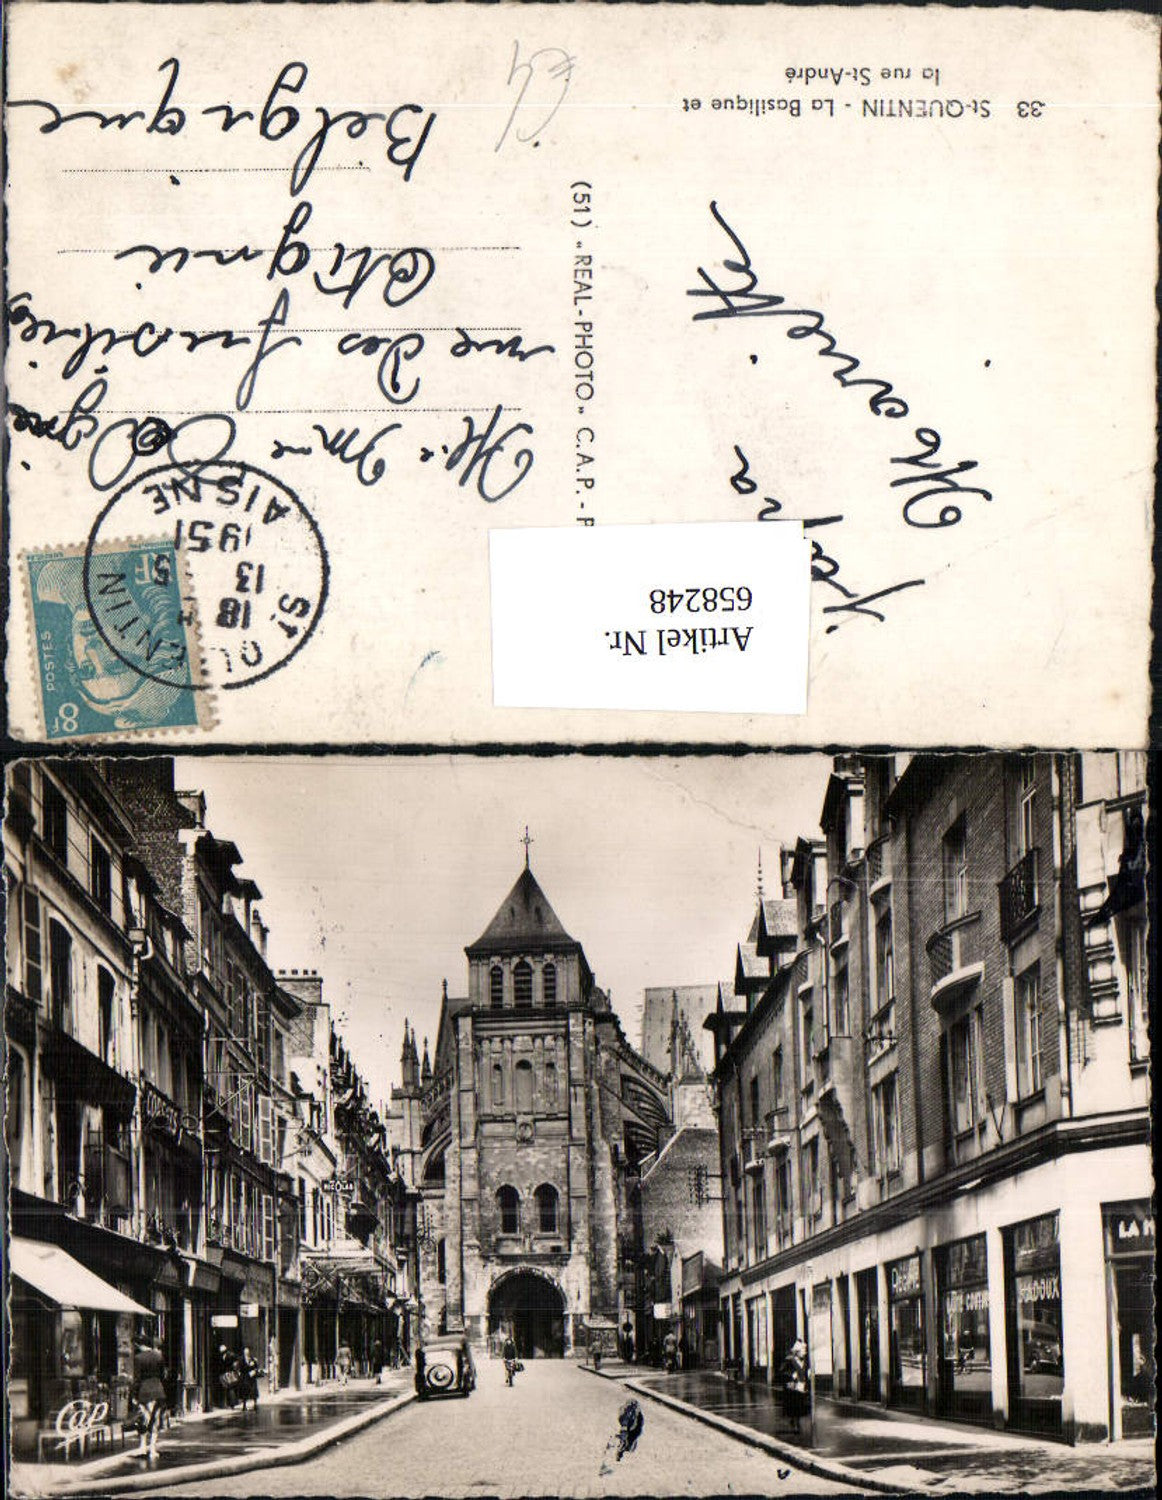 33 St-QUENTIN - La Basilique et
la rue St-André
Mariette
(51) "REAL-PHOTO" C.A.P. - P
Mr & Mme
rue des fusillés
Otignie
Belgique
ST QUENTIN
18 H
13 5
1951
AISNE
POSTES
8F
RF
Artikel Nr.
658248
NICOLAS
LA M
Cap